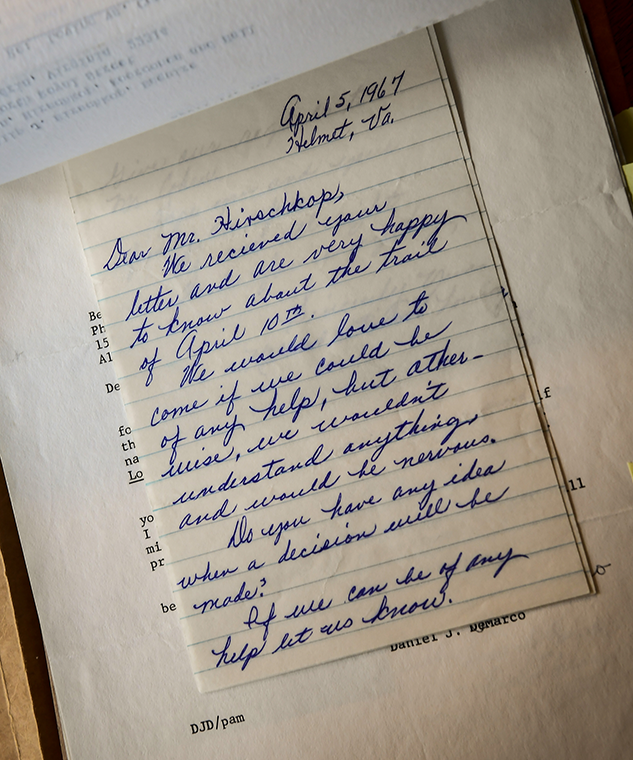 April 5, 1967
Helmet, Va.
Dear Mr. Hirschkop,
We recieved your
letter and are very happy
to know about the trail
of April 10th.
We would love to
come if we could be
of any help, but other-
wise, we wouldn't
understand anything
and would be nervous.
Do you have any idea
when a decision will be
made?
If we can be of any
help let us know.
Be
Ph
15
Al
De
fc
th
na
Lo
yo
I
mi
pr
be
if
ll
Daniel J. DeMarco
DJD/pam